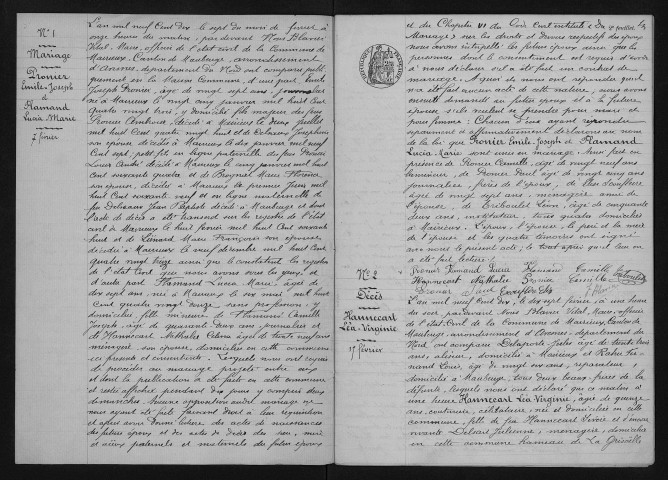 N° 1
Mariage
Pronier
Emile-Joseph
&
Flamand
Lucia Marie
7 février
L'an mil neuf Cent Dix le sept du mois de février à
onze heures du matin, par devant Nous Blavier
Vital, Maire, officier de l'état civil de la Commune de
Mairieux, Canton de Maubeuge, arrondissement
d'Avesnes, département du Nord ont comparu publi-
quement en la Maison Commune, d'une part Emile
Joseph Pronier, âgé de vingt sept ans, journalier
né à Mairieux le vingt cinq janvier mil huit Cent
quatre vingt trois, y domicilié fils majeur des feus
Pronier décédé à Mairieux le deux
mil huit Cent quatre vingt huit et de Joséphine
son épouse décédée à Mairieux le dix janvier mil neuf
Cent sept, petit fils en ligne paternelle des feus Pronier
Louis décédé à Mairieux le cinq janvier mil huit Cent
soixante quatre et de Marie Florence
son épouse, décédée à Mairieux le premier Juin mil
huit Cent soixante neuf et en ligne maternelle de
feu Jean Baptiste décédé à Maubeuge et dont
l'acte de décès a été transcrit sur les registres de l'état
civil à Mairieux le huit février mil huit Cent soixante
huit et de Liénard Marie Françoise son épouse
décédée à Mairieux le neuf décembre mil huit Cent
quatre vingt treize ainsi que le constatent les registres
de l'état Civil que nous avons sous les yeux, et
d'autre part Flamand Lucia Marie, âgée de
dix sept ans née à Mairieux le six mai mil huit
Cent quatre vingt douze sans profession, y
domiciliée, fille mineure de Flamand Camille
Joseph, âgé de quarante deux ans, journalier et
de Hannecart Nathalie âgée de trente neuf ans
ménagère, son épouse, domiciliés en cette commune
ici présents et consentants. Lesquels nous ont requis
de procéder au mariage projeté entre eux
et dont la publication a été faite en cette commune
et restée affichée pendant dix jours y compris deux
dimanches. Aucune opposition audit mariage ne
nous ayant été faite faisant droit à leur réquisition
et après avoir donné lecture des actes de naissances
des futurs époux et des actes de décès des père, mère
et aïeux paternels et maternels du futur époux
et du Chapitre VI du Code Civil intitulé (Du
Mariage) sur les droits et devoirs respectifs des époux
nous avons interpellé les futurs époux ainsi que les
personnes dont le consentement est requis d'avoir
à nous déclarer s'il a été fait un contrat de
mariage. A quoi ils nous ont répondu qu'il
n'a été fait aucun acte de cette nature, nous avons
ensuite demandé au futur époux et à la future
épouse s'ils veulent se prendre pour mari et
pour femme : Chacun d'eux ayant répondu
séparément et affirmativement déclarons au nom
de la loi que Pronier Emile Joseph et Flamand
Lucia Marie sont unis en mariage. Ainsi fait en
présence de Pronier Camille, âgé de vingt neuf ans
lamineur, de Pronier Paul âgé de vingt cinq ans
journalier, frères de l'époux, de
âgé de vingt sept ans, ménagère amie de
l'épouse, de Triboulet Léon, âgé de cinquante
deux ans, instituteur, tous quatre domiciliés
à Mairieux. L'époux, l'épouse, le père et la mère
de l'épouse et les quatre témoins ont signé
avec nous le présent acte, le tout après qu'il leur en
a été fait lecture :
Pronier Flamand Lucia Flamand Camille
Hannecart Nathalie Pronier Camille Tribouillet
Pronier Paul
N° 2
Décès
Hannecart
Léa-Virginie
17 février
L'an mil neuf Cent dix, le dix sept février, à une heure
du soir, par devant Nous Blavier Vital, Maire, officier
de l'état Civil de la Commune de Mairieux, Canton de
Maubeuge, arrondissement d'Avesnes, département du
Nord, ont comparu Delaporte Jules âgé de trente trois
ans, domicilié à Mairieux et
Louis, âgé de vingt six ans,
domicilié à Maubeuge, tous deux beaux-frères de la
défunte, lesquels nous ont déclaré que ce matin à
une heure Hannecart Léa-Virginie, âgée de quinze
ans, couturière, célibataire, née et domiciliée en cette
commune, fille de feu Hannecart et d'encore
vivante Delsart Julienne, ménagère, domiciliée
en cette commune hameau de La Grisoelle